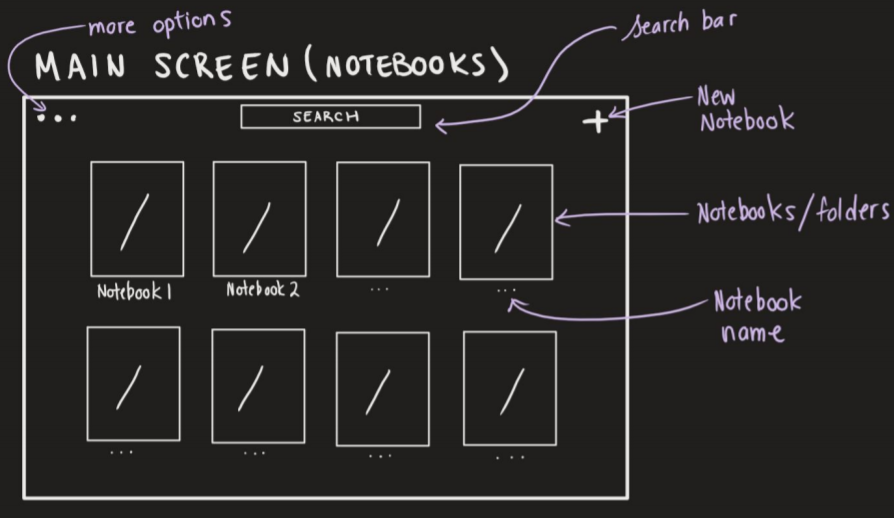 more options
search bar
MAIN SCREEN (NOTEBOOKS)
...
SEARCH
+
New
Notebook
Notebooks/folders
Notebook 1
Notebook 2
...
...
Notebook
name
...
...
...
...